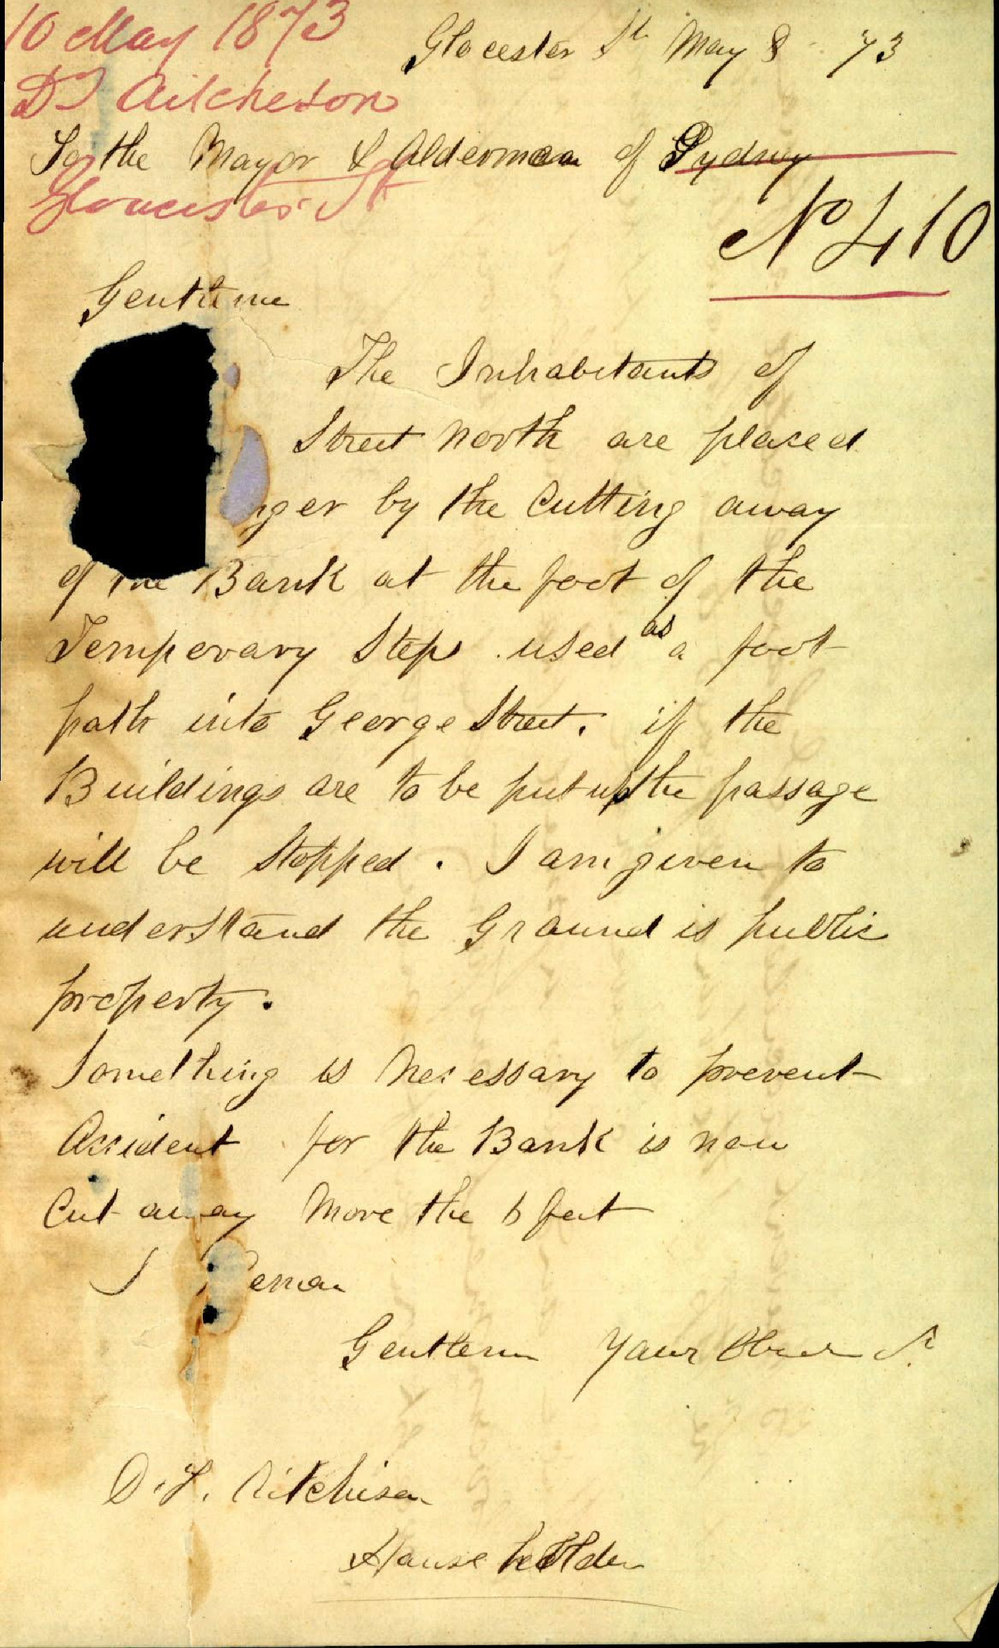 10 May 1873
Glocester St May 8 73
DT Aitcheson
To the Mayor & Aldermen of Sydney
Gloucester St
No 410
Gentleme
The Inhabitants of
Street North are placed
nger by the Cutting away
of the Bank at the foot of the
Temporary Steps used as a foot
path into George Street. if the
Buildings are to be put up the passage
will be Stopped. I am given to
understand the Ground is public
property.
Something is Necessary to prevent
Accident for the Bank is now
Cut away More the 6 feet
I eman
Gentlemn Your St
D. T. Aitchison
House holder